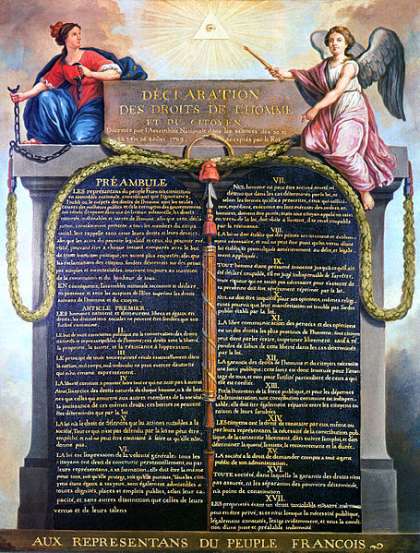 DÉCLARATION
DES DROITS DE L'HOMME
ET DU CITOYEN,
Décrétés par l'Assemblée Nationale dans les séances des 20, 21
23, 24 et 26 août 1789, acceptés par le Roi
PRÉAMBULE
LES représentans du peuple François constitués
en assemblée nationale, considérant que l'ignorance,
l'oubli ou le mépris des droits de l'homme sont les seules
causes des malheurs publics et de la corruption des gouvernemens
ont résolu d'exposer dans une déclaration solemnelle, les droits
naturels, inaliénables et sacrés de l'homme, afin que cette
constamment présente à tous les membres du corps
social, leur rappelle sans cesse leurs droits et leurs devoirs,
afin que les actes du pouvoir législatif et ceux du pouvoir
cutif, pouvant être à chaque instant comparés avec le but
de toute institution politique, en soient plus respectés; afin que
les réclamations des citoyens, fondées désormais sur des
simples et incontestables, tournent toujours au maintien
de la constitution et du bonheur de tous.
EN conséquence, l'assemblée nationale reconnoit et déclare,
en présence et sous les auspices de l'Être suprême les droits
suivans de l'homme et du citoyen.
ARTICLE PREMIER.
LES hommes naissent et demeurent libres et égaux en
droits, les distinctions sociales ne peuvent être fondées que sur
l'utilité commune.
II.
LE but de toute association politique est la conservation des droits
naturels et imprescriptibles de l'homme; ces droits sont la liberté,
la propriété, la sureté, et la résistance à l'oppression.
III.
LE principe de toute souveraineté réside essentiellement dans
la nation, nul corps, nul individu ne peut exercer d'autorité
qui n'en émane expressément.
IV.
LA liberté consiste à pouvoir faire tout ce qui ne nuit pas à autrui
Ainsi, l'exercice des droits naturels de chaque homme, n'a de bor-
nes que celles qui assurent aux autres membres de la société
la jouissance de ces mêmes droits; ces bornes ne peuvent
être déterminées que par la loi
V.
LA loi n'a le droit de défendre que les actions nuisibles à la
société. Tout ce qui n'est pas défendu par la loi ne peut être
empêché, et nul ne peut être contraint à faire ce qu'elle n'or-
donne pas.
VI.
LA loi est l'expression de la volonté générale; tous les
citoyens ont droit de concourir personnellement, ou par
leurs représentans, à sa formation; elle doit être la même
pour tous, soit qu'elle protège, soit qu'elle punisse. Tous les
citoyens étant égaux à ses yeux, sont également admissibles à
toutes dignités, places et emplois publics, selon leur ca-
pacité, et sans autres distinctions que celles de leurs
vertus et de leurs talens.
VII.
NUL homme ne peut être accusé, arrêté, ni
détenu que dans les cas déterminés par la loi, et
selon les formes qu'elle a prescrites, ceux qui sollici-
tent, expédient, exécutent ou font exécuter des ordres ar-
bitraires, doivent être punis; mais tout citoyen appelé ou saisi
en vertu de la loi, doit obéir à l'instant, il se rend coupable
par la résistance.
VIII.
LA loi ne doit établir que des peines strictement et évidem-
ment nécessaires, et nul ne peut être puni qu'en vertu d'une
loi établie et promulguée antérieurement au délit, et légale-
ment appliquée.
IX.
TOUT homme étant présumé innocent jusqu'à ce qu'il ait
été déclaré coupable, s'il est jugé indispensable de l'arrêter,
toute rigueur qui ne seroit pas nécessaire pour s'assurer de
sa personne doit être sévèrement réprimée par la loi.
X.
NUL ne doit être inquiété pour ses opinions, mêmes religi-
euses pourvu que leur manifestation ne trouble pas l'ordre
public établi par la loi.
XI.
LA libre communication des pensées et des opinions
est un des droits les plus précieux de l'homme; tout citoyen
peut donc parler, écrire, imprimer librement, sauf à ré-
pondre de l'abus de cette liberté dans les cas déterminés
par la loi.
XII.
LA garantie des droits de l'homme et du citoyen nécessite
une force publique; cette force est donc instituée pour l'avan-
tage de tous, et non pour l'utilité particulière de ceux à qui
elle est confiée.
XIII.
POUR l'entretien de la force publique, et pour les dépenses
d'administration, une contribution commune est indispen-
sable; elle doit être également répartie entre les citoyens en
raison de leurs facultés.
XIV.
LES citoyens ont le droit de constater par eux même ou
par leurs représentans, la nécessité de la contribution pub-
lique, de la consentir librement, d'en suivre l'emploi, et d'en
déterminer la quotité, l'assiette, le recouvrement et la durée.
XV.
LA société a le droit de demander compte à tout agent
public de son administration.
XVI.
TOUTE société, dans laquelle la garantie des droits n'est
pas assurée, ni la séparation des pouvoirs déterminée,
n'a point de constitution
XVII.
LES propriétés étant un droit inviolable et sacré, nul ne
peut en être privé, si ce n'est lorsque la nécessité publique,
légalement constatée, l'exige évidemment, et sous la condi-
tion d'une juste et préalable indemnité.
AUX REPRESENTANS DU PEUPLE FRANCOIS